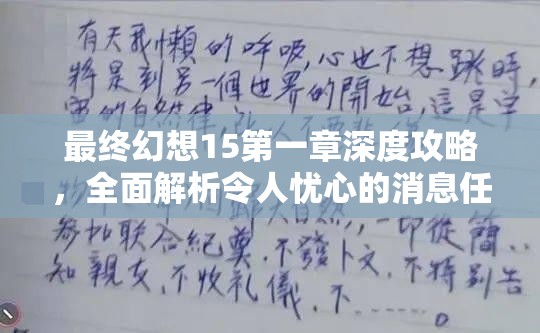 有天我懶的呼吸,心也不想跳時,
將是到另一個世界的開始,這是宇
宙的自然律
最终幻想15第一章深度攻略
，全面解析令人忧心的消息任
大自然,一切從簡..
參加聯合紀奠,不發卜文,不特別告
知親友,不收礼儀,不……。